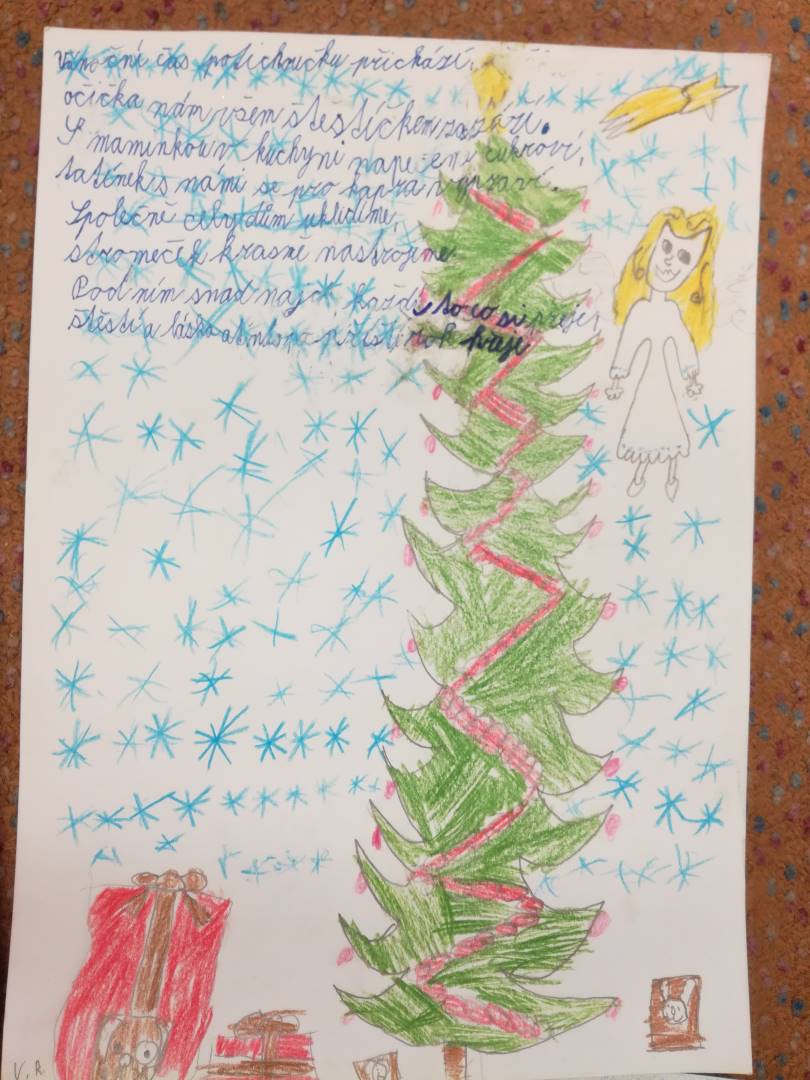 Vánoční čas potichučku přichází,
očička nám všem štěstíčkem zazáří.
S maminkou v kuchyni cukroví,
tatínek s námi se pro kapra vypraví.
Společně celý dům uklidíme,
stromeček krásně nastrojíme
Pod ním snad každý to co si přeje,
štěstí a lásku
V. R.